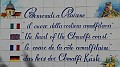 Benvenuti a Positano
il cuore della costiera amalfitana
the heart of the Amalfi coast
le coeur de la côte amalfitaine
das herz der Amalfi Küste